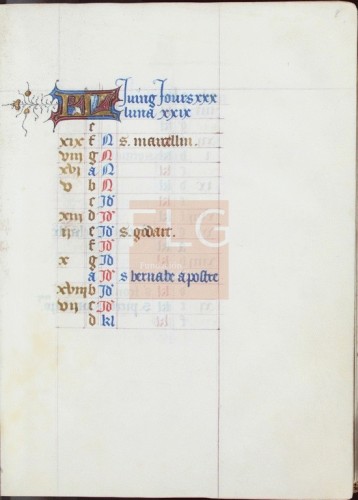 KL Juing Jours xxx
luna xxix
e
xix f N s. marcellin.
viii g N
xvi a N
v b N
c Id
xiii d Id
ii e Id s. godart.
f Id
x g Id
a Id s bernabe apostre
xviii b Id
vii c Id
d kl
FLG